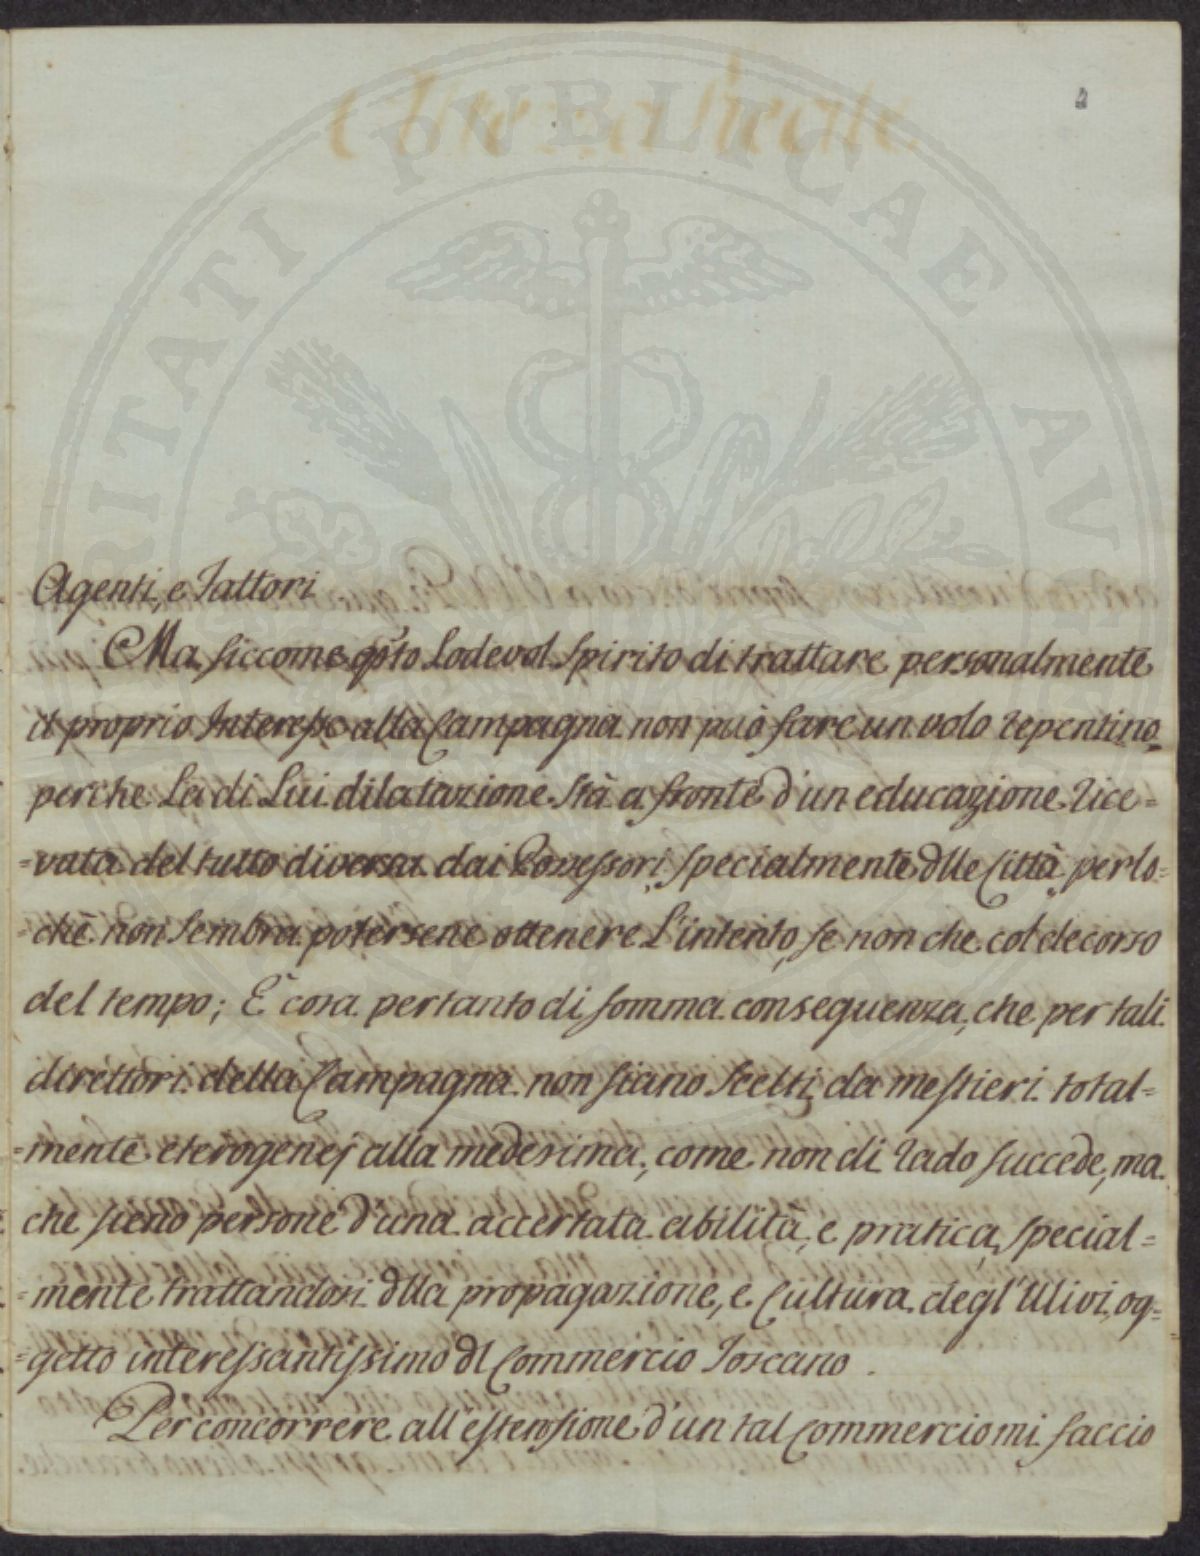 2
Agenti, e Fattori
Ma siccome qsto Lodevol Spirito di trattare personalmente
il proprio Interesse alla Campagna non può fare un volo repentino
perche La di Lui dilatazione Stà a fronte d'un educazione rice=
=vuta del tutto diversa dai Possessori specialmente dlle Città, perlo=
=chè non sembra potersene ottenere L'intento, se non che col decorso
del tempo; È cosa pertanto di somma conseguenza, che per tali
direttori della Campagna non siano Scelti da mestieri total=
=mente eterogenej alla medesima, come non di rado succede, ma
che sieno persone d'una accertata abilità, e pratica, special=
=mente trattandosi dlla propagazione, e Cultura degl'Ulivi, og=
=getto interessantissimo dl Commercio Toscano.
Per concorrere all'estensione d'un tal Commercio mi faccio